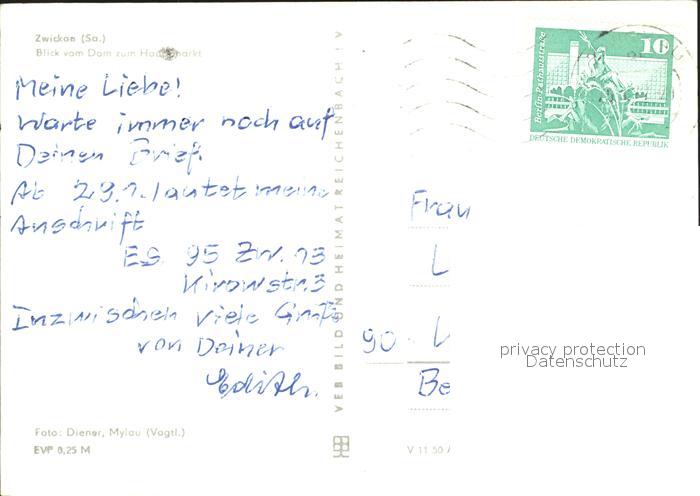 Zwickau (Sa.)
Blick vom Dom zum Hauptmarkt
Meine Liebe!
Warte immer noch auf
Deinen Brief.
Ab 29.1. lautet meine
Anschrift
95 Zw. 13
Kirowstr. 3
Inzwischen viele Grüße
von Deiner
Edith.
Foto: Diener, Mylau (Vogtl.)
EVP 0,25 M
VEB BILD UND HEIMAT REICHENBACH I V
10
Berlin-Rathausstraße
DEUTSCHE DEMOKRATISCHE REPUBLIK
Frau
L
90
Be
privacy protection
Datenschutz
V 11 50